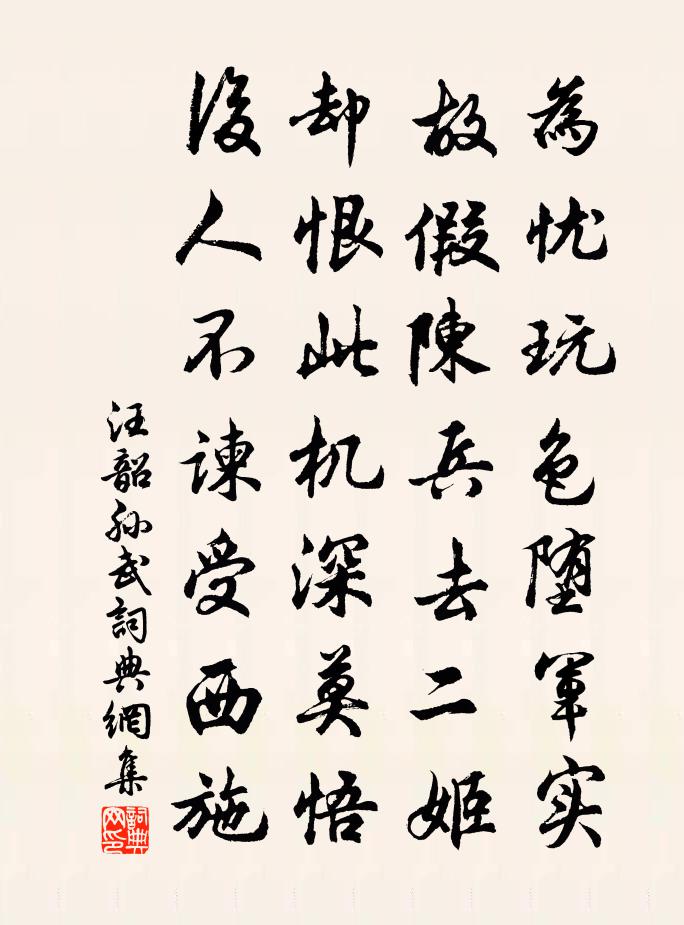 為忧玩色堕军实
故假陳兵去二姬
却恨此机深莫悟
後人不諫受西施
汪韶孙武詞典網集
詞典
网印